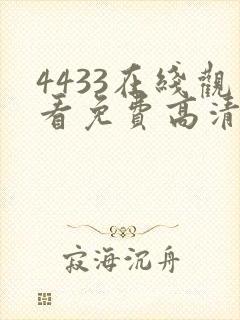 4433在綫觀
看免費高清
寂海沉舟